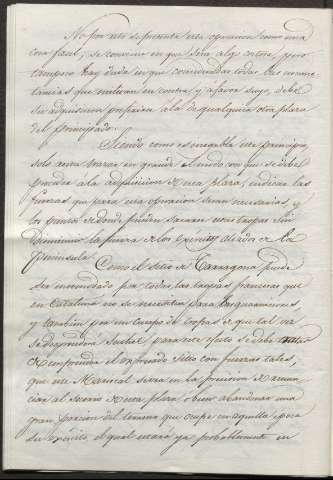 No por esto se presenta esta operacion como una
cosa facil; se conviene en que será algo costosa, pero
tampoco hay duda en que consideradas todas las circuns-
tancias que militan en contra y á favor suyo, debe
su adquisicion preferirse á la de qualquiera otra plaza
del principado.
Siendo como es innegable este principio,
solo resta trazar en grande el modo con que se debe
proceder a la adquisicion de esta plaza, indicar las
fuerzas que para esta operacion serán necesarias, y
los puntos de donde pueden sacarse estas tropas sin
disminuir la fuerza de los Exércitos aliados de la
Peninsula.
Como el sitio de Tarragona puede
ser incomodado por todas las tropas francesas que
en Cataluña no se necesitan para
y tambien por un cuerpo de tropas que tal vez
se desprenda Suchet, para este efecto se debe
emprender el expresado sitio con fuerzas tales,
que este Mariscal se vea en la precision de renun-
ciar al socorro de esta plaza, ó bien abandonar una
gran porcion del terreno que ocupe en aquella epoca
su exército, el qual estará ya probablemente en